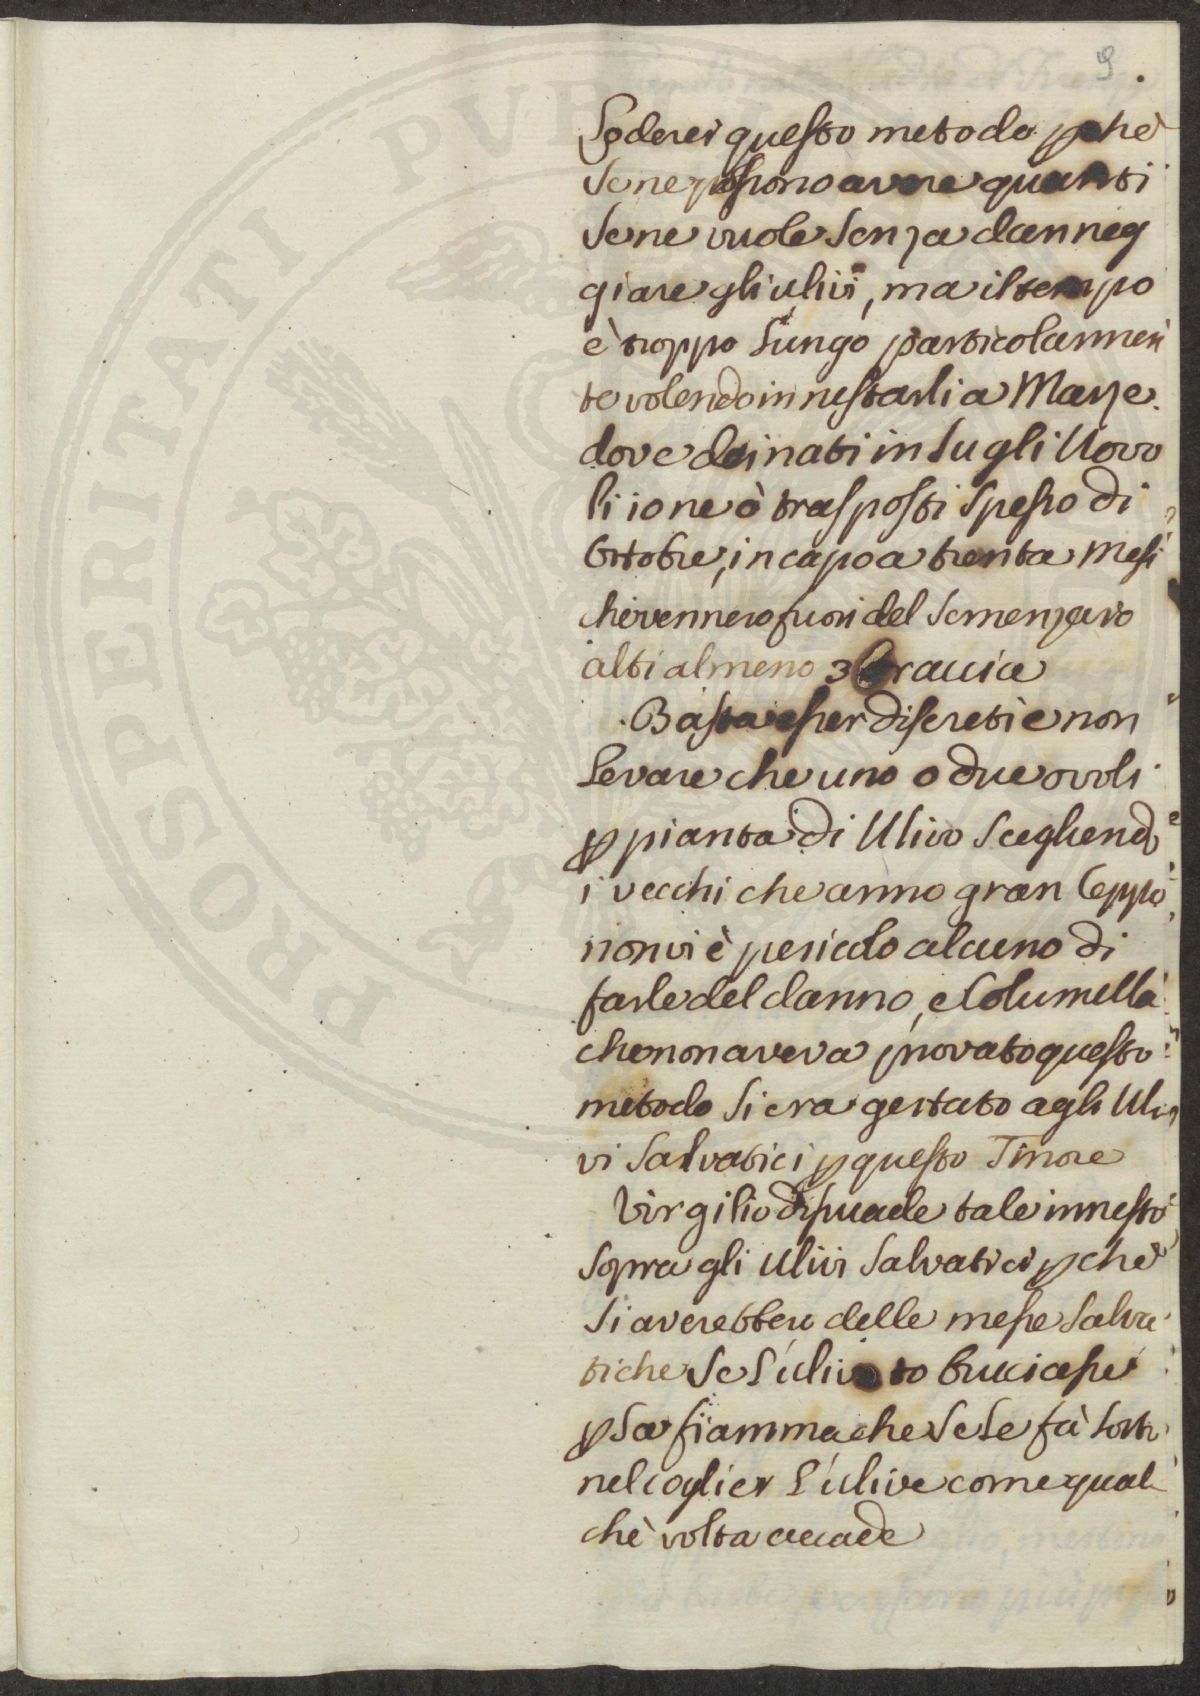 9.
Loderei questo metodo pchè
se ne possono avere quanti
se ne vuole senza danneg
giare gli ulivi, ma il tempo
è troppo lungo particolarmen
te volendo innestarli a Marze.
dove dei nati in su gli Uovo
li io ne ò trasposti spesso di
Ottobre, in capo a trenta Mesi
che vennero fuori del semenzaro
alti almeno 3 braccia
Basta esser discreti e non
levare che uno o due ovoli
p pianta di Ulivo scegliendo
i vecchi che anno gran Ceppo
non vi è pericolo alcuno di
farle del danno, e Columella
che non aveva provato questo
metodo si era gettato agli Uli
vi salvatici p questo Timore
Virgilio disuade tale innesto
sopra gli Ulivi salvatici pchè
si averebbero delle messe salva
tiche se l'uliveto bruciasse
p la fiamma che se le fà sotto
nel coglier l'ulive come qual
chè volta accade
PROSPERITATI PVB